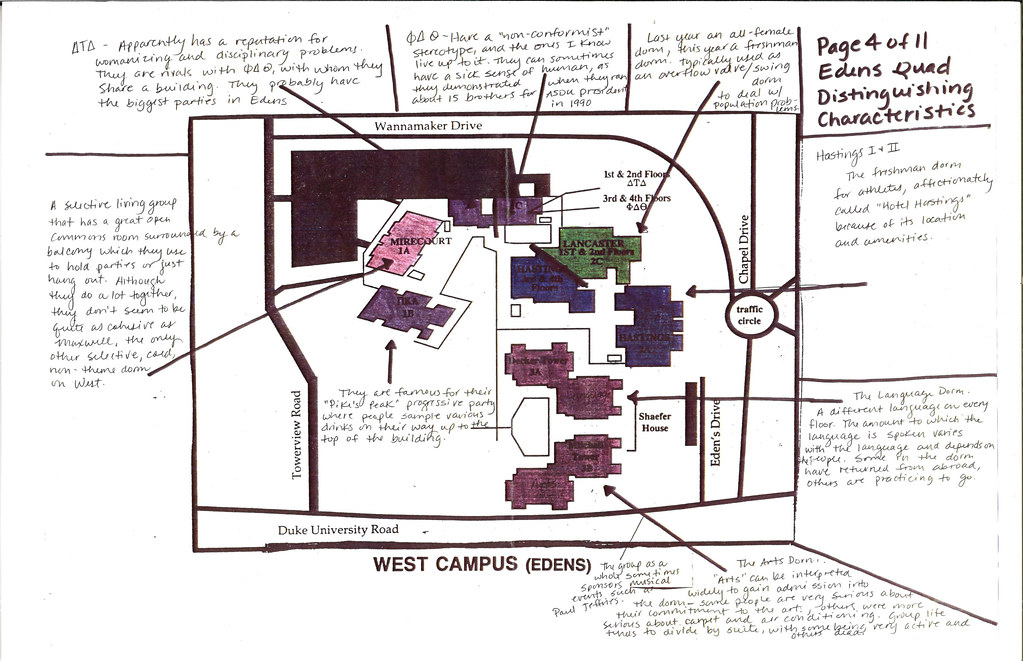 ΔTΔ - Apparently has a reputation for
womanizing and disciplinary problems.
They are rivals with ΦΔΘ, with whom they
share a building. They probably have
the biggest parties in Edens
ΦΔΘ - Have a "non-conformist"
stereotype, and the ones I know
live up to it. They can sometimes
have a sick sense of humor, as
they demonstrated when they ran
about 15 brothers for ASDU president
in 1990
Last year an all-female
dorm, this year a freshman
dorm. Typically used as
an overflow valve/swing
dorm
to deal w/
population prob-
lems
Page 4 of 11
Edens Quad
Distinguishing
Characteristics
Hastings I & II
The freshman dorm
for athletes, affectionately
called "Hotel Hastings"
because of its location
and amenities.
A selective living group
that has a great open
commons room surrounded by a
balcony which they use
to hold parties or just
hang out. Although
they do a lot together,
they don't seem to be
quite as cohesive as
Maxwell, the only
other selective, coed,
non-theme dorm
on West.
Wannamaker Drive
1st & 2nd Floors
ΔTΔ
3rd & 4th Floors
ΦΔΘ
MIRECOURT
1A
LANCASTER
1ST & 2nd Floors
2C
HASTINGS
3rd & 4th
Floors
PIKA
1B
HASTINGS
2C
Chapel Drive
traffic
circle
Decker Tower
3A
They are famous for their
"Pika's Peak" progressive party
where people sample various
drinks on their way up to the
top of the building.
Shaefer
House
Eden's Drive
Towerview Road
Tower
3B
The Language Dorm.
A different language on every
floor. The amount to which the
language is spoken varies
with the language and depends on
people. Some in the dorm
have returned from abroad,
others are practicing to go.
Duke University Road
WEST CAMPUS (EDENS)
The group as a
whole sometimes
sponsors musical
events such as
Paul Jeffries.
The Arts Dorm.
"Arts" can be interpreted
widely to gain admission into
the dorm - some people are very serious about
their commitment to the art, others were more
serious about carpet and air conditioning. Group life
tends to divide by suite, with some being very active and
others dead.